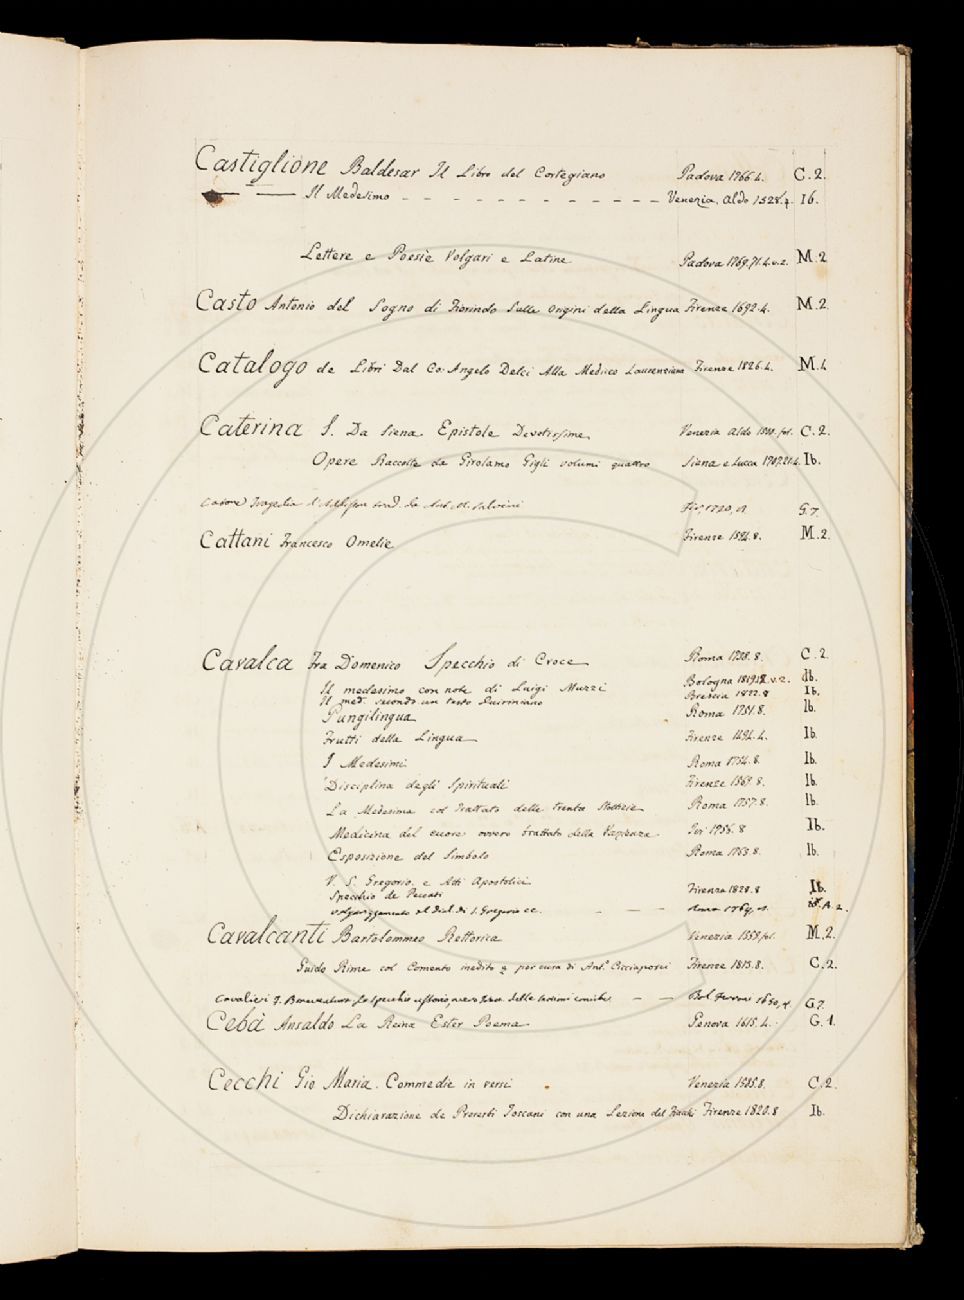 Castiglione Baldesar Il Libro del Cortegiano Padova 1766.4. C.2.
Il Medesimo Venezia. Aldo 1528.f. Ib.
Lettere e Poesie Volgari e Latine Padova 1769.71.4.v.2. M.2
Casto Antonio del Sogno di Fiorindo Sulle Origini della Lingua Firenze 1692.4. M.2.
Catalogo de Libri Dal Co: Angelo Delci Alla Mediceo Laurenziana Firenze 1826.4. M.1.
Caterina S. Da Siena Epistole Devotissime Venezia Aldo fol. C.2.
Opere Raccolte da Girolamo Gigli volumi quattro Siena e Lucca 1707.21.4. Ib.
Catone Tragedia d'Addisson trad. da Ant. M. Salvini Fir. G.7.
Cattani Francesco Omelie Firenze 8. M.2.
Cavalca Fra Domenico Specchio di Croce Roma 1738.8. C.2
Il medesimo con note di Luigi Muzzi Bologna v.2. Ib.
Il med. secondo un testo Quiriniano Brescia 1822.8 Ib.
Pungilingua Roma 1751.8. Ib.
Frutti della Lingua Firenze 1494.4. Ib.
I Medesimi Roma 1754.8. Ib.
Disciplina degli Spirituali Firenze 1569.8. Ib.
La Medesima col Trattato delle trenta Stoltizie Roma 1757.8. Ib.
Medicina del cuore ovvero trattato della Pazienza Ivi 1756.8 Ib.
Esposizione del Simbolo Roma 1763.8. Ib.
V. S. Gregorio. e Atti Apostolici
Specchio de Peccati Firenze 1828.8 Ib.
volgarizzamento al Dial. di S. Gregorio ec. Roma 1764, A.2.
Cavalcanti Bartolommeo Rettorica Venezia 1558.fol. M.2.
Guido Rime col Comento inedito e per cura di Ant.º Cicciaporci Firenze 1813.8. C.2.
Cavalieri F. Bonaventura, Lo Specchio ustorio, ovvero Tratt. delle settioni coniche Bol. Ferroni 1650, 4. G.7.
Cebà Ansaldo La Reina Ester Poema Genova 1615.4. G.1.
Cecchi Gio Maria. Commedie in versi Venezia 1585.8. C.2.
Dichiarazione de Proverbi Toscani con una Lezione del Firenze 1820.8 Ib.